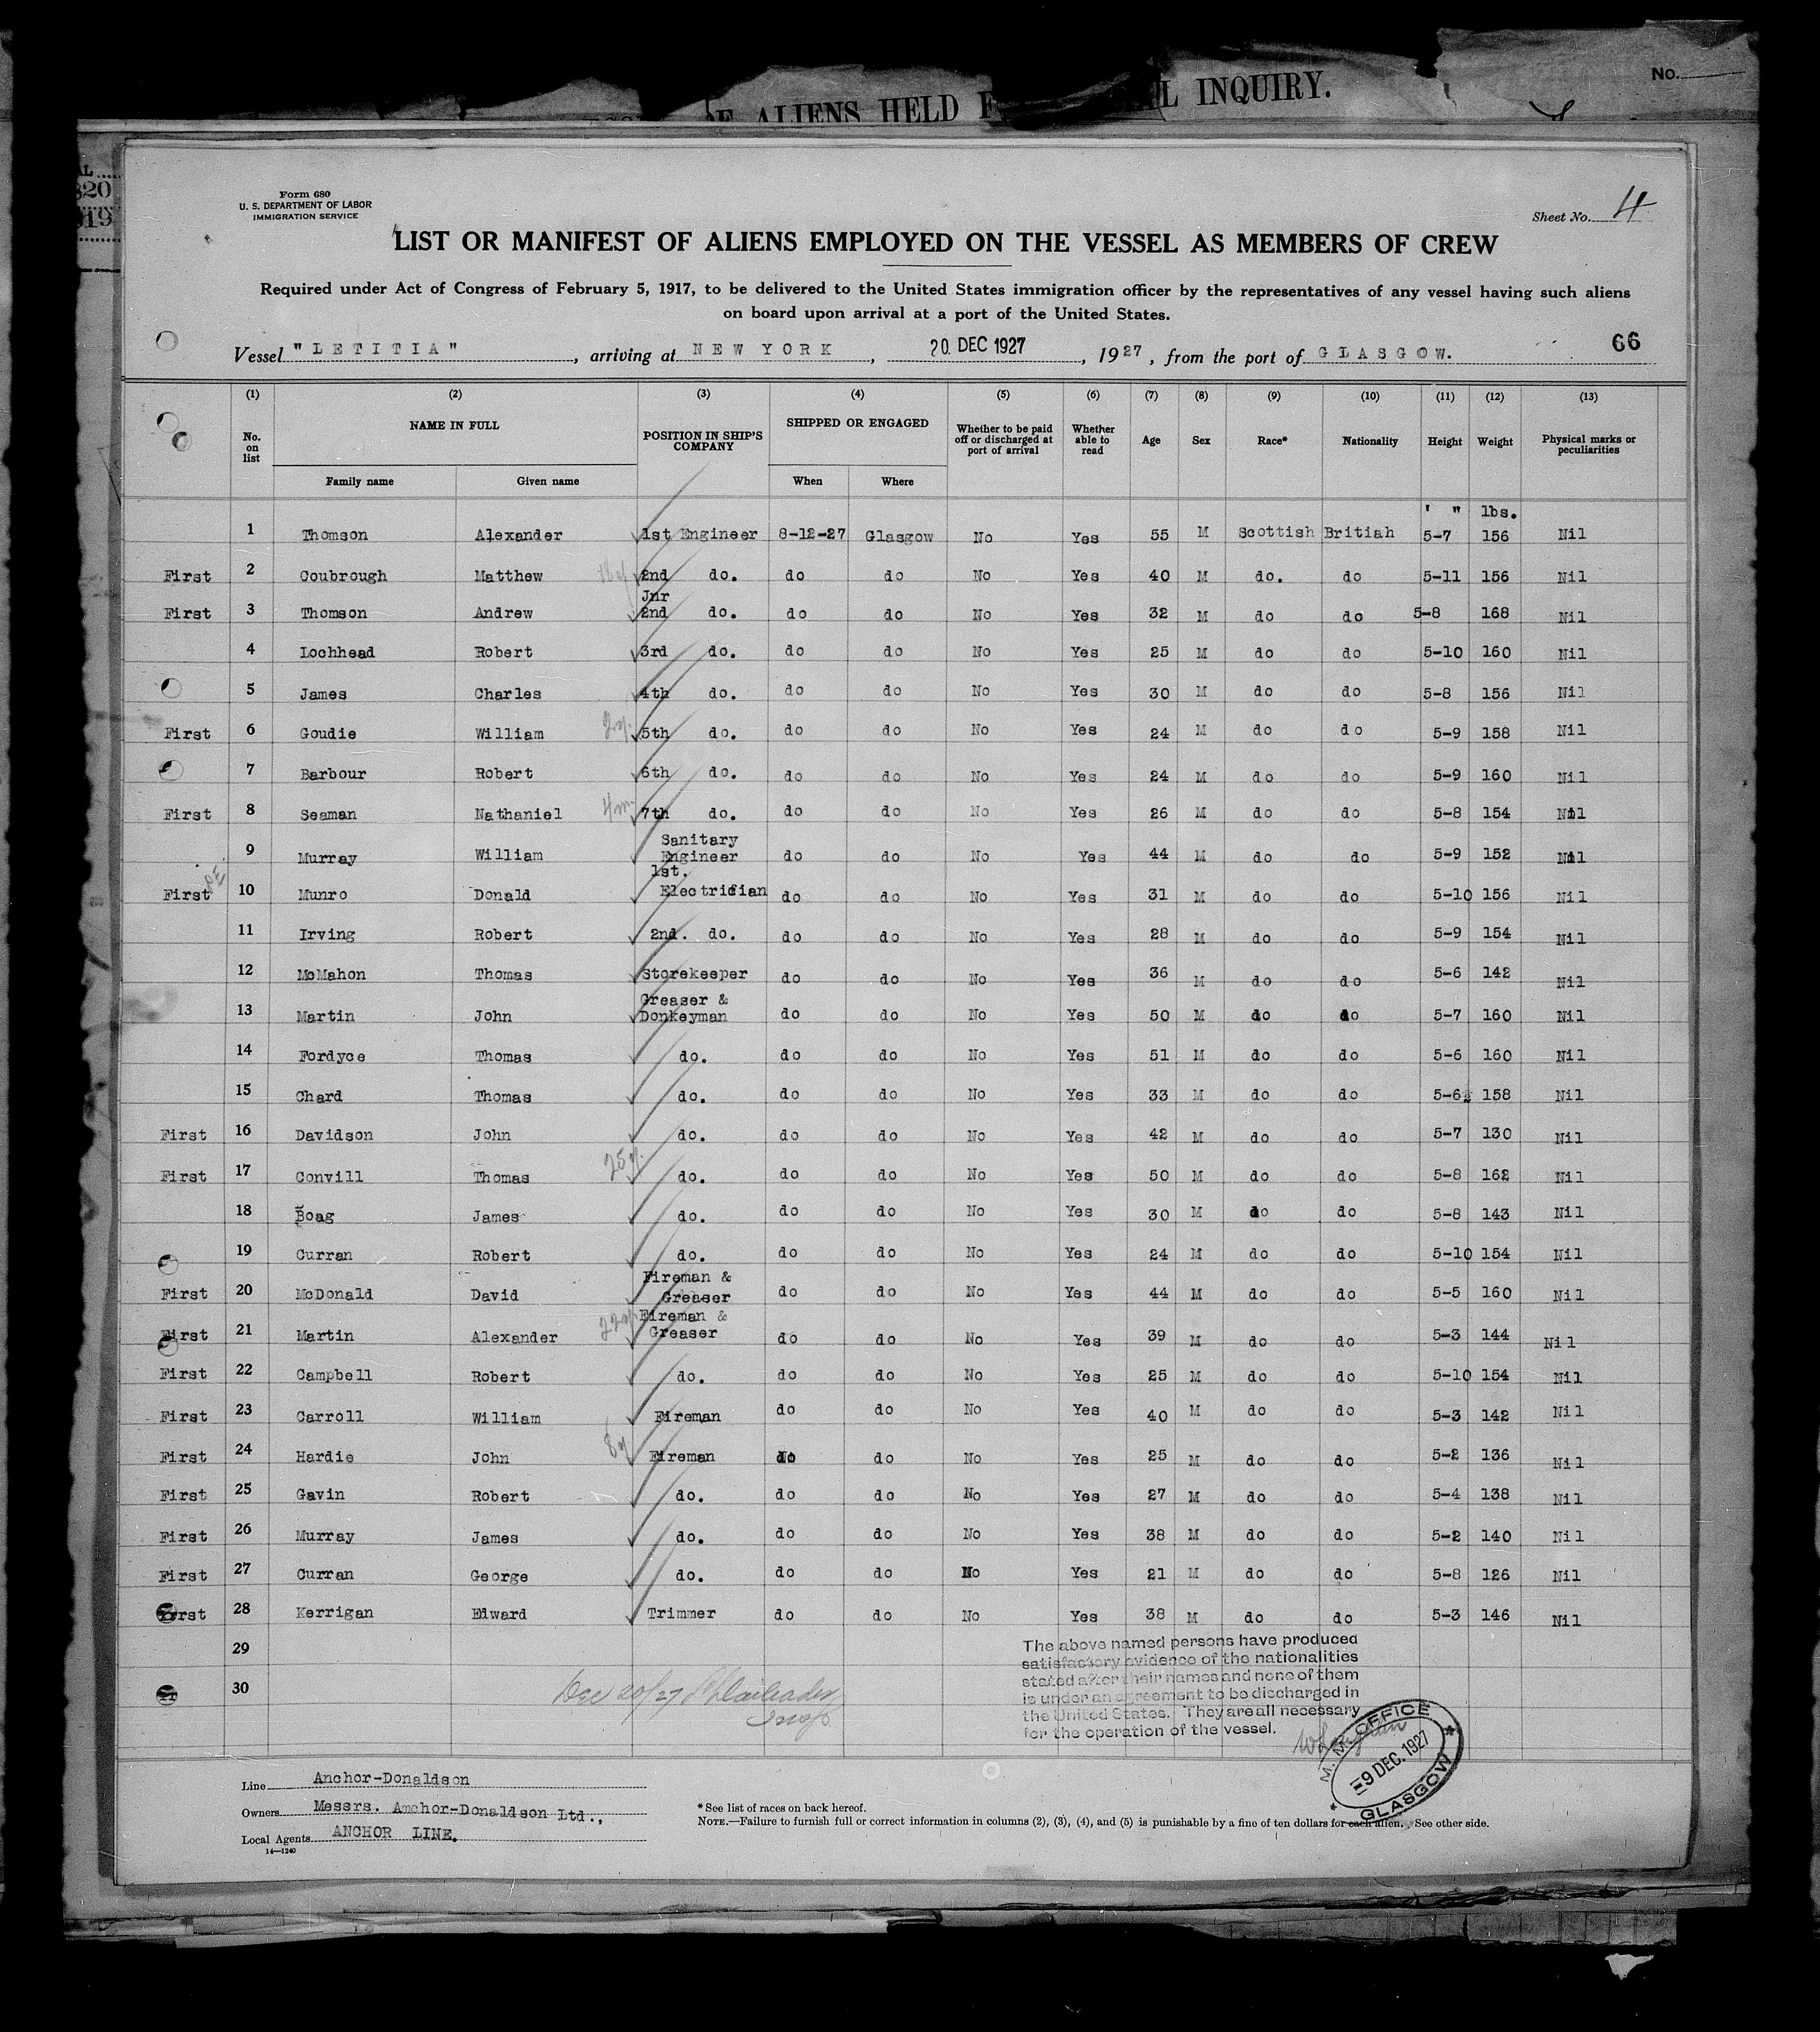 ALIENS HELD F L INQUIRY.
No.
320
319
Form 680
U. S. DEPARTMENT OF LABOR
IMMIGRATION SERVICE
Sheet No. 4
LIST OR MANIFEST OF ALIENS EMPLOYED ON THE VESSEL AS MEMBERS OF CREW
Required under Act of Congress of February 5, 1917, to be delivered to the United States immigration officer by the representatives of any vessel having such aliens
on board upon arrival at a port of the United States.
66
Vessel "LETITIA", arriving at NEW YORK, 20 DEC 1927, 1927, from the port of GLASGOW.
(1) (2) (3) (4) (5) (6) (7) (8) (9) (10) (11) (12) (13)
No. on list NAME IN FULL POSITION IN SHIP'S COMPANY SHIPPED OR ENGAGED Whether to be paid off or discharged at port of arrival Whether able to read Age Sex Race* Nationality Height Weight Physical marks or peculiarities
Family name Given name When Where
' " lbs.
1 Thomson Alexander 1st Engineer 8-12-27 Glasgow No Yes 55 M Scottish Britiah 5-7 156 Nil
First 2 Coubrough Matthew 2nd do. do do No Yes 40 M do. do 5-11 156 Nil
First 3 Thomson Andrew Jnr 2nd do. do do No Yes 32 M do do 5-8 168 Nil
4 Lochhead Robert 3rd do. do do No Yes 25 M do do 5-10 160 Nil
5 James Charles 4th do. do do No Yes 30 M do do 5-8 156 Nil
First 6 Goudie William 2y. 5th do. do do No Yes 24 M do do 5-9 158 Nil
7 Barbour Robert 6th do. do do No Yes 24 M do do 5-9 160 Nil
First 8 Seaman Nathaniel 4m 7th do. do do No Yes 26 M do do 5-8 154 Nil
9 Murray William Sanitary Engineer do do No Yes 44 M do do 5-9 152 Nil
First 10 Munro Donald 1st. Electrician do do No Yes 31 M do do 5-10 156 Nil
11 Irving Robert 2nd. do. do do No Yes 28 M do do 5-9 154 Nil
12 McMahon Thomas Storekeeper do do No Yes 36 M do do 5-6 142 Nil
13 Martin John Greaser & Donkeyman do do No Yes 50 M do do 5-7 160 Nil
14 Fordyce Thomas do. do do No Yes 51 M do do 5-6 160 Nil
15 Chard Thomas do. do do No Yes 33 M do do 5-6½ 158 Nil
First 16 Davidson John do. do do No Yes 42 M do do 5-7 130 Nil
First 17 Convill Thomas 25y. do. do do No Yes 50 M do do 5-8 162 Nil
18 Boag James do. do do No Yes 30 M do do 5-8 143 Nil
19 Curran Robert do. do do No Yes 24 M do do 5-10 154 Nil
First 20 McDonald David Fireman & Greaser do do No Yes 44 M do do 5-5 160 Nil
First 21 Martin Alexander 22y Fireman & Greaser do do No Yes 39 M do do 5-3 144 Nil
First 22 Campbell Robert do. do do No Yes 25 M do do 5-10 154 Nil
First 23 Carroll William Fireman do do No Yes 40 M do do 5-3 142 Nil
First 24 Hardie John 8y Fireman do do No Yes 25 M do do 5-2 136 Nil
First 25 Gavin Robert do. do do No Yes 27 M do do 5-4 138 Nil
First 26 Murray James do. do do No Yes 38 M do do 5-2 140 Nil
First 27 Curran George do. do do No Yes 21 M do do 5-8 126 Nil
First 28 Kerrigan Edward Trimmer do do No Yes 38 M do do 5-3 146 Nil
29
30
The above named persons have produced
satisfactory evidence of the nationalities
stated after their names and none of them
is under an agreement to be discharged in
the United States. They are all necessary
for the operation of the vessel.
Dec 20/27
Insp.
M. M. OFFICE
9 DEC. 1927
GLASGOW
Line Anchor-Donaldson
Owners Messrs. Anchor-Donaldson Ltd.,
Local Agents ANCHOR LINE.
14—1240
* See list of races on back hereof.
NOTE.—Failure to furnish full or correct information in columns (2), (3), (4), and (5) is punishable by a fine of ten dollars for each alien. See other side.